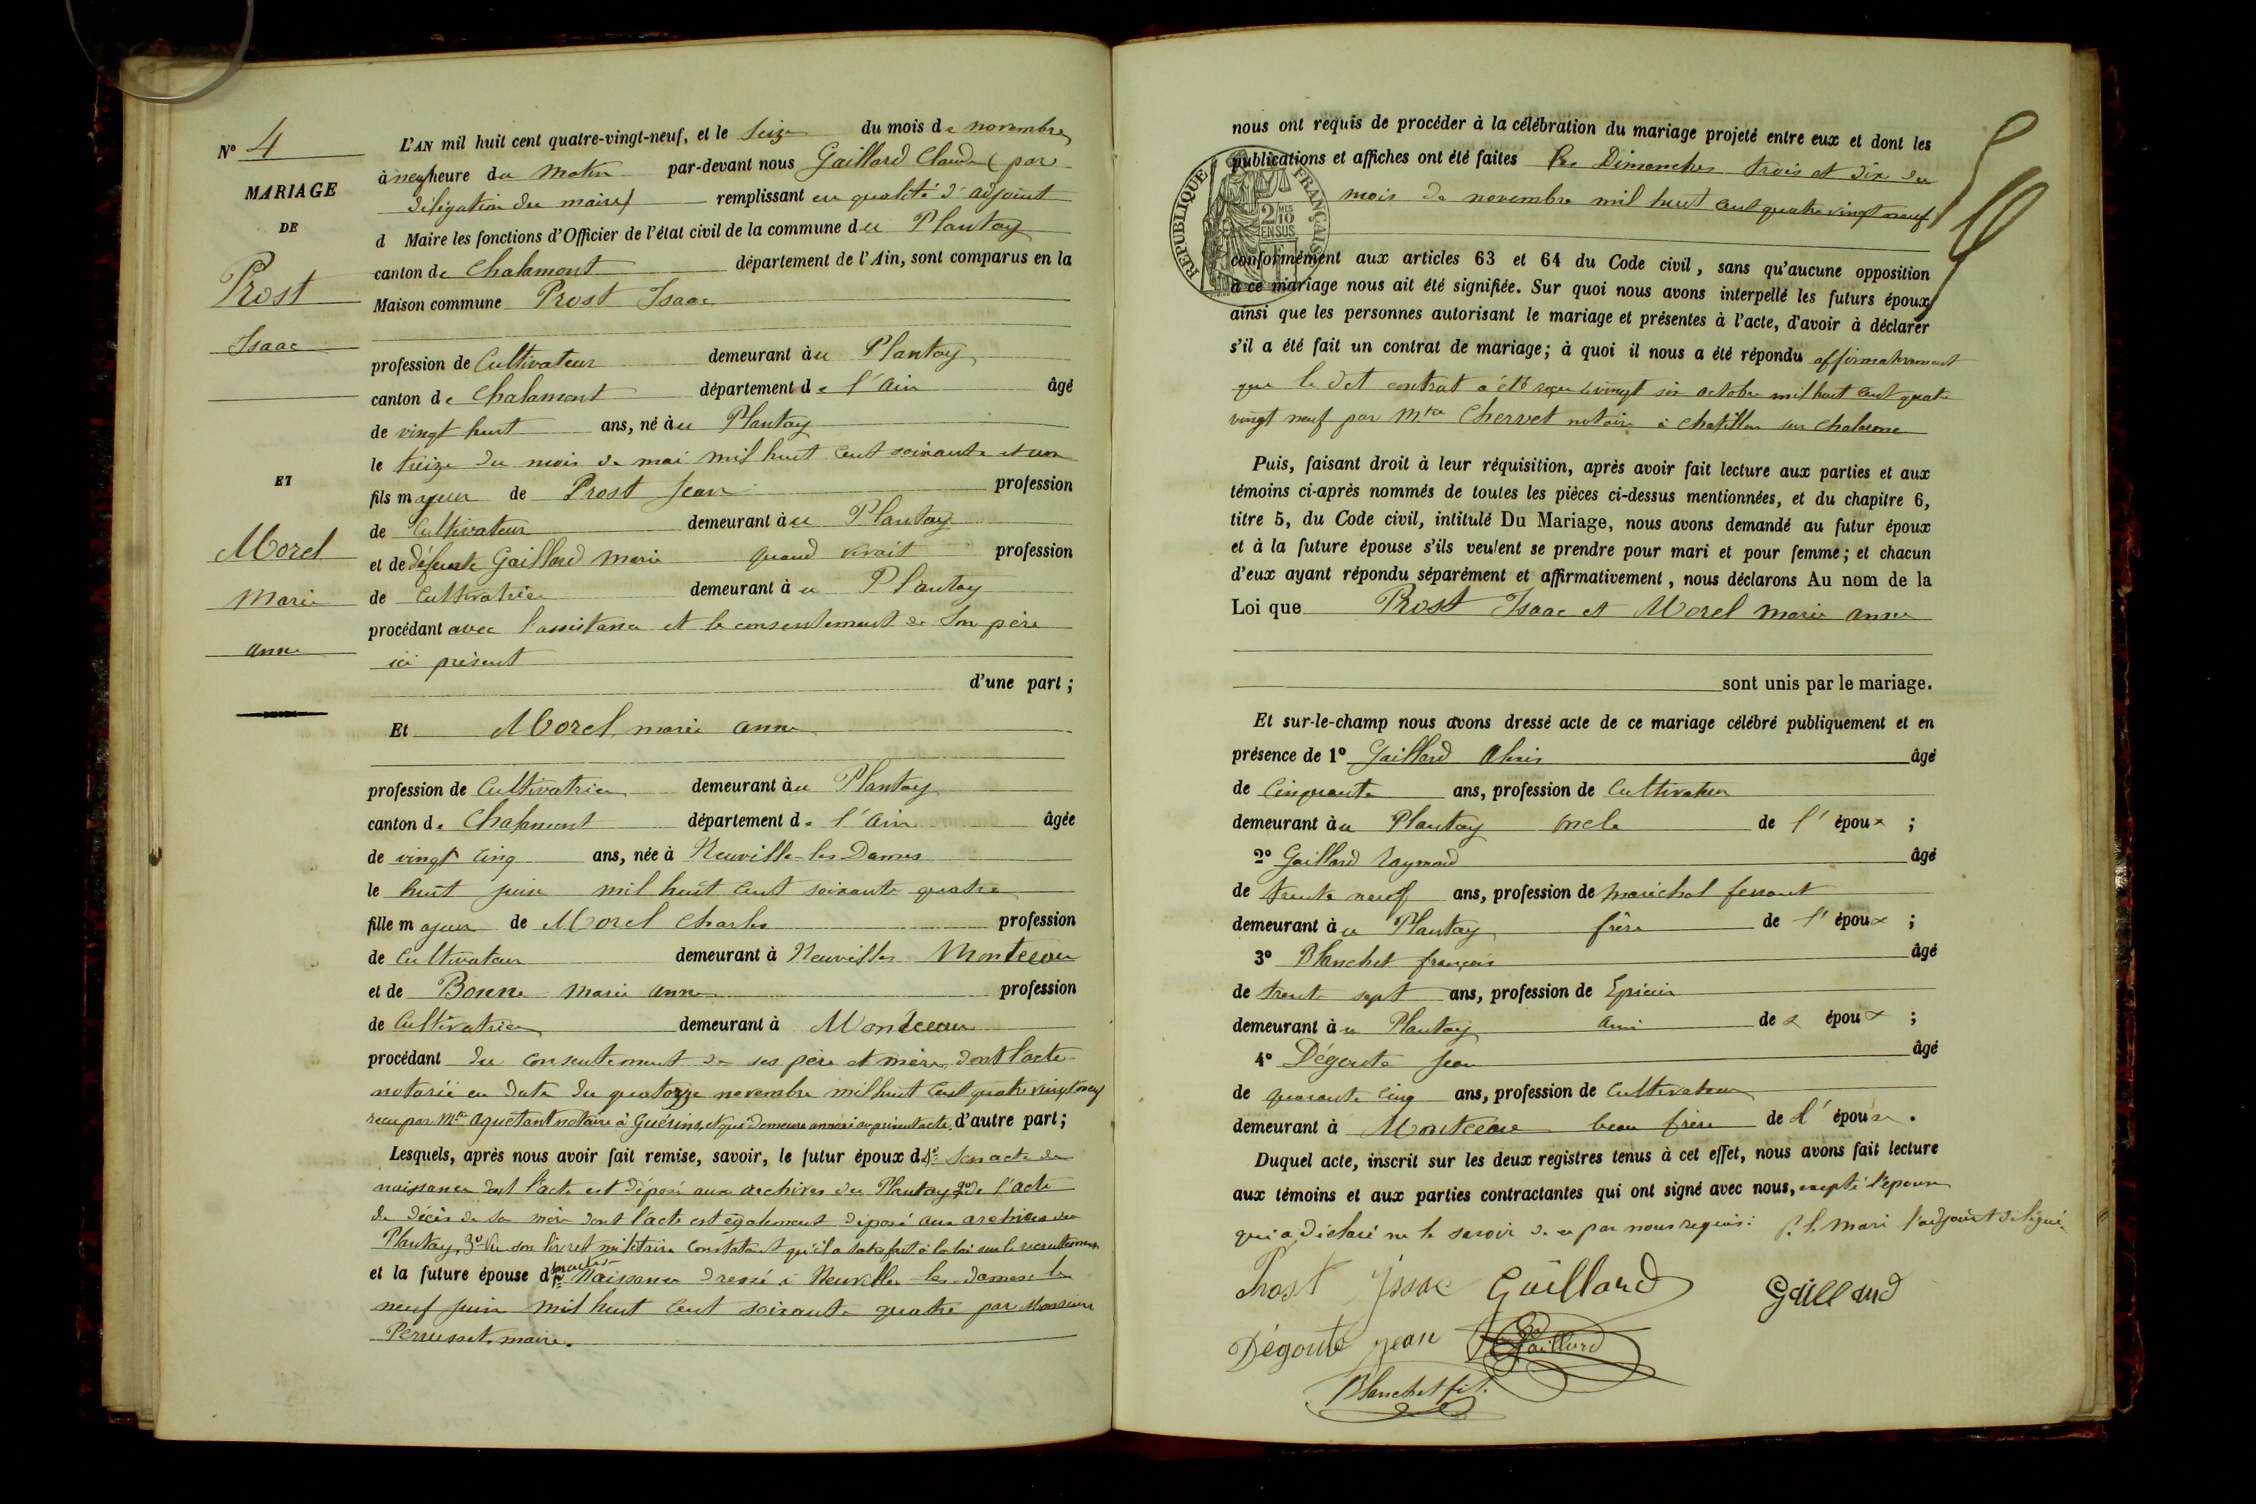 N° 4
MARIAGE
DE
Prost
Isaac
ET
Morel
Marie
anne
L'AN mil huit cent quatre-vingt-neuf, et le Seize du mois de novembre
à neuf heure du Matin par-devant nous Gaillard Claude (par
délégation du maire) remplissant en qualité d'adjoint
d Maire les fonctions d'Officier de l'état civil de la commune du Plantay
canton de Chalamont département de l'Ain, sont comparus en la
Maison commune Prost Isaac
profession de Cultivateur demeurant au Plantay
canton de Chalamont département de l'Ain âgé
de vingt huit ans, né au Plantay
le treize du mois de mai mil huit cent soixante et un
fils majeur de Prost Jean profession
de Cultivateur demeurant au Plantay
et de défunte Gaillard Marie quand vivait profession
de Cultivatrice demeurant au Plantay
procédant avec l'assistance et le consentement de Son père
ici présent
d'une part;
Et Morel marie anne
profession de Cultivatrice demeurant au Plantay
canton de Chalamont département de l'Ain âgée
de vingt cinq ans, née à Neuville les Dames
le huit juin mil huit cent soixante quatre
fille majeur de Morel Charles profession
de Cultivateur demeurant à Neuvilles Montceau
et de Bonne Marie anne profession
de Cultivatrice demeurant à Montceau
procédant du consentement de ses père et mère dont l'acte
notariée en date du quatorze novembre mil huit cent quatre vingt neuf
recu par Mtre Aguetant notaire à Guérins, et qui demeure annexé au présent acte. d'autre part;
Lesquels, après nous avoir fait remise, savoir, le futur époux d 1° Son acte de
naissance dont l'acte est déposé aux archives du Plantay 2° de l'acte
de décès de sa mère dont l'acte est également déposé aux archives du
Plantay, 3° Vu son livret militaire constatant qu'il a satisfait à la loi sur le recrutement
et la future épouse d 1° Son acte de Naissance dressé à Neuville les dames le
neuf juin mil huit cent soixante quatre par Monsieur
Perrusset maire.
nous ont requis de procéder à la célébration du mariage projeté entre eux et dont les
publications et affiches ont été faites les Dimanches trois et dix du
mois de novembre mil huit cent quatre vingt neuf
RÉPUBLIQUE FRANÇAISE
2 MES 10
EN SUS
conformément aux articles 63 et 64 du Code civil, sans qu'aucune opposition
à ce mariage nous ait été signifiée. Sur quoi nous avons interpellé les futurs époux
ainsi que les personnes autorisant le mariage et présentes à l'acte, d'avoir à déclarer
s'il a été fait un contrat de mariage; à quoi il nous a été répondu affirmativement
que le dit contrat a été reçu le vingt six octobre mil huit cent quatre
vingt neuf par Mtre Chervet notaire à Chatillon sur Chalaronne
Puis, faisant droit à leur réquisition, après avoir fait lecture aux parties et aux
témoins ci-après nommés de toutes les pièces ci-dessus mentionnées, et du chapitre 6,
titre 5, du Code civil, intitulé Du Mariage, nous avons demandé au futur époux
et à la future épouse s'ils veulent se prendre pour mari et pour femme; et chacun
d'eux ayant répondu séparément et affirmativement, nous déclarons Au nom de la
Loi que Prost Isaac et Morel marie anne
sont unis par le mariage.
Et sur-le-champ nous avons dressé acte de ce mariage célébré publiquement et en
présence de 1° Gaillard âgé
de Cinquante ans, profession de Cultivateur
demeurant au Plantay oncle de l'époux ;
2° Gaillard Raymond âgé
de trente neuf ans, profession de maréchal ferrant
demeurant au Plantay frère de l'époux ;
3° Blanchet françois âgé
de trente sept ans, profession de Epicier
demeurant au Plantay ami de époux ;
4° Dégoute Jean âgé
de quarante cinq ans, profession de Cultivateur
demeurant à Montceau beau frère de l'épouse.
Duquel acte, inscrit sur les deux registres tenus à cet effet, nous avons fait lecture
aux témoins et aux parties contractantes qui ont signé avec nous, excepté l'épouse
qui a déclaré ne le savoir de ce par nous requis. P. le Mari l'adjoint délégué
Prost Isaac Gaillard Gaillard
Dégoute Jean Gaillard
Blanchet fs.